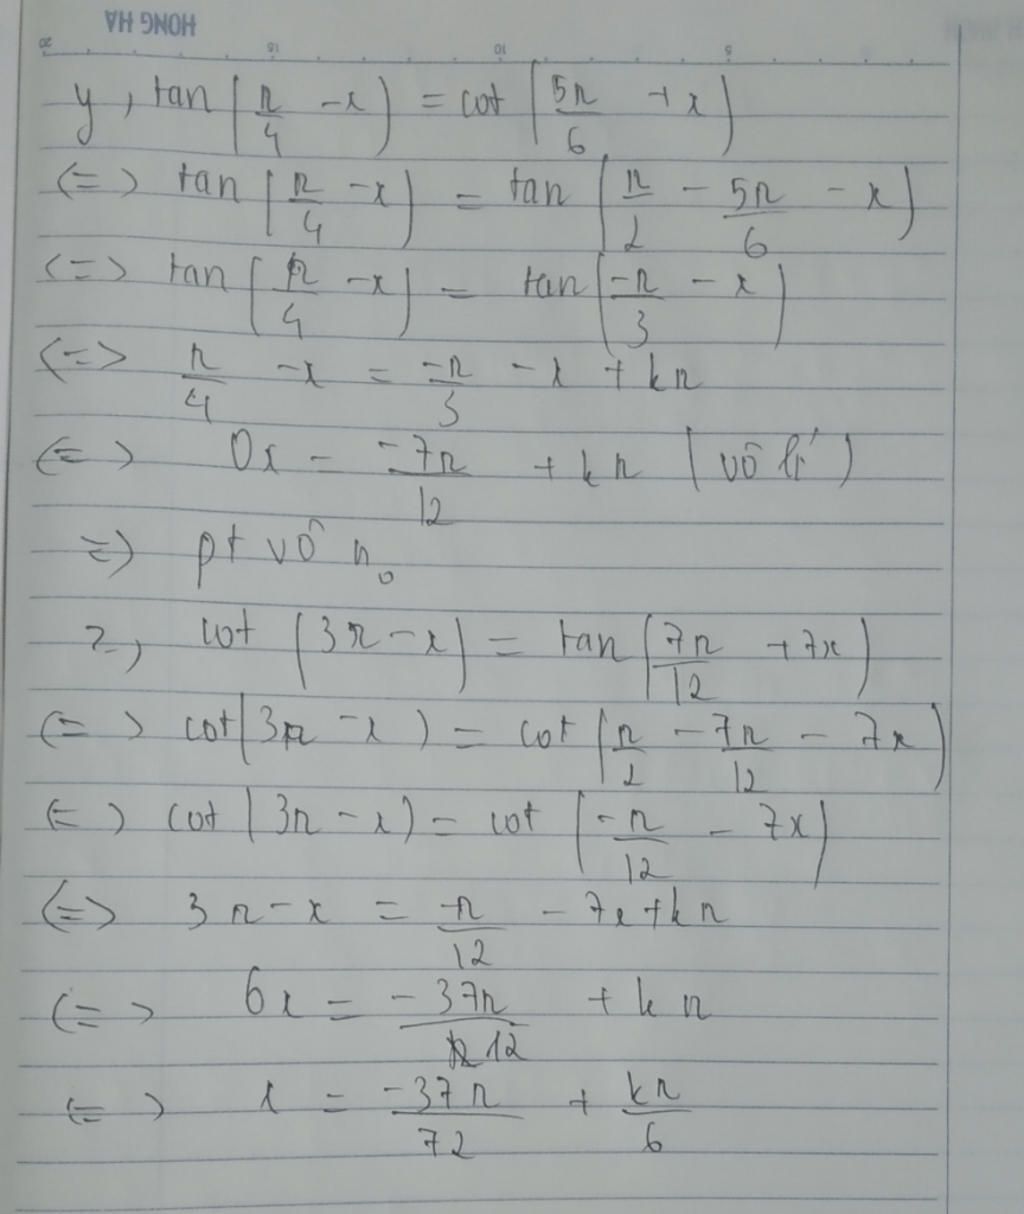 HONG HA
20 15 10 5
y, tan(π/4 - x) = cot(5π/6 + x)
<=> tan(π/4 - x) = tan(π/2 - 5π/6 - x)
<=> tan(π/4 - x) = tan(-π/3 - x)
<=> π/4 - x = -π/3 - x + kπ
<=> 0x = -7π/12 + kπ (vô lí)
=> pt vô no
z, cot(3π - x) = tan(7π/12 + 7x)
<=> cot(3π - x) = cot(π/2 - 7π/12 - 7x)
<=> cot(3π - x) = cot(-π/12 - 7x)
<=> 3π - x = -π/12 - 7x + kπ
<=> 6x = -37π/12 + kπ
<=> x = -37π/72 + kπ/6